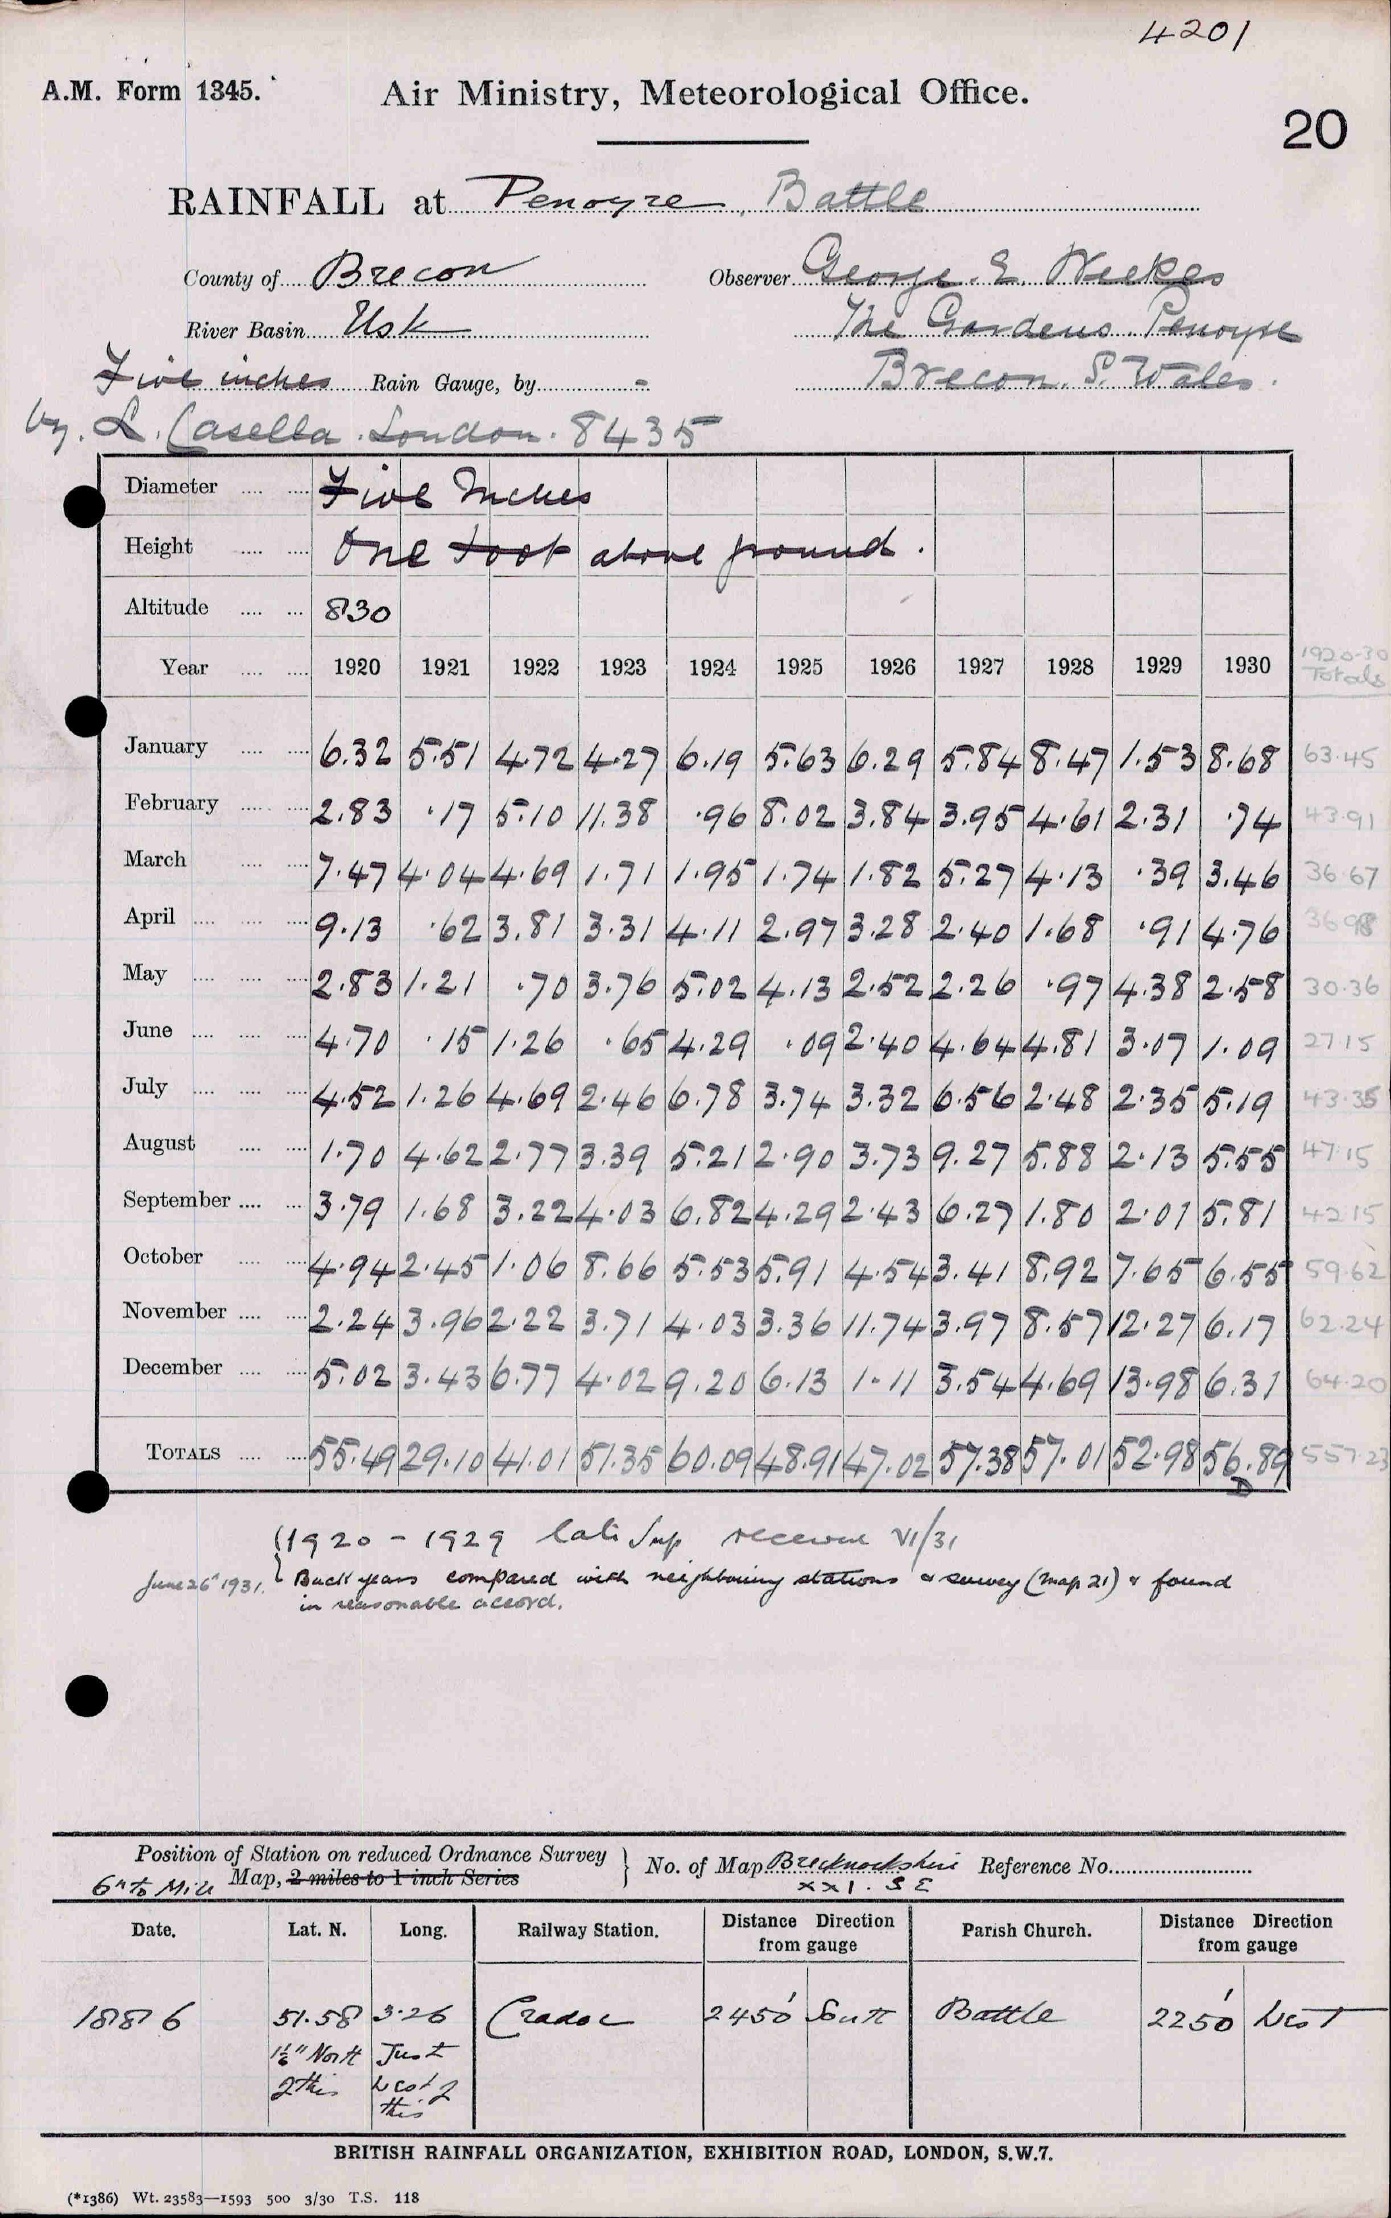 4201
A.M. Form 1345.
Air Ministry, Meteorological Office.
20
RAINFALL at Penoyre, Battle
County of Brecon Observer George. E. Weekes
River Basin Usk The Gardens. Penoyre
Five inches Rain Gauge, by - Brecon. S. Wales.
by. L. Casella. London. 8435
Diameter Five Inches
Height One Foot above ground.
Altitude 830
Year 1920 1921 1922 1923 1924 1925 1926 1927 1928 1929 1930 1920-30 Totals
January 6.32 5.51 4.72 4.27 6.19 5.63 6.29 5.84 8.47 1.53 8.68 63.45
February 2.83 .17 5.10 11.38 .96 8.02 3.84 3.95 4.61 2.31 .74 43.91
March 7.47 4.04 4.69 1.71 1.95 1.74 1.82 5.27 4.13 .39 3.46 36.67
April 9.13 .62 3.81 3.31 4.11 2.97 3.28 2.40 1.68 .91 4.76 36.98
May 2.83 1.21 .70 3.76 5.02 4.13 2.52 2.26 .97 4.38 2.58 30.36
June 4.70 .15 1.26 .65 4.29 .09 2.40 4.64 4.81 3.07 1.09 27.15
July 4.52 1.26 4.69 2.46 6.78 3.74 3.32 6.56 2.48 2.35 5.19 43.35
August 1.70 4.62 2.77 3.39 5.21 2.90 3.73 9.27 5.88 2.13 5.55 47.15
September 3.79 1.68 3.22 4.03 6.82 4.29 2.43 6.27 1.80 2.01 5.81 42.15
October 4.94 2.45 1.06 8.66 5.53 5.91 4.54 3.41 8.92 7.65 6.55 59.62
November 2.24 3.96 2.22 3.71 4.03 3.36 11.74 3.97 8.57 12.27 6.17 62.24
December 5.02 3.43 6.77 4.02 9.20 6.13 1.11 3.54 4.69 13.98 6.31 64.20
TOTALS 55.49 29.10 41.01 51.35 60.09 48.91 47.02 57.38 57.01 52.98 56.89 557.23
D
1920 - 1929 received VI/31
June 26 1931. Back years compared with neighbouring stations & survey (map 21) & found
in reasonable accord.
Position of Station on reduced Ordnance Survey
Map, 2 miles to 1 inch Series
6" to Mile
No. of Map Brecknockshire Reference No.
XXI. SE
Date. Lat. N. Long. Railway Station. Distance Direction from gauge Parish Church. Distance Direction from gauge
1886 51.58 3.26 Cradoc 2450' South Battle 2250' West
North Just
of this West of
this
BRITISH RAINFALL ORGANIZATION, EXHIBITION ROAD, LONDON, S.W.7.
(*1386) Wt. 23583—1593 500 3/30 T.S. 118